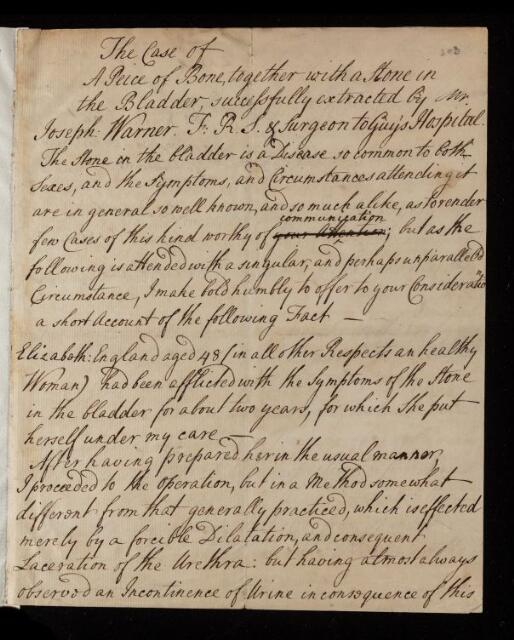 203
The Case of
A Peice of Bone, together with a Stone in
the Bladder, successfully extracted by Mr.
Joseph Warner. F. R. S. & Surgeon to Guy's Hospital.
The Stone in the bladder is a Disease so common to both
Sexes, and the Symptoms, and Circumstances attending it
are in general so well known, and so much alike, as to render
communication
few Cases of this kind worthy of your Attention; but as the
following is attended with a singular, and perhaps unparallel'd
Circumstance, I make bold humbly to offer to your Consideration
a short Account of the following Fact —
Elizabeth: England aged 48 (in all other Respects an healthy
Woman) had been afflicted with the Symptoms of the Stone
in the bladder for about two years, for which She put
herself under my care —
After having prepared her in the usual manner,
I proceeded to the operation, but in a Method somewhat
different from that generally practiced, which is effected
merely by a forcible Dilatation, and consequent
Laceration of the Urethra: but having almost always
observed an Incontinence of Urine in consequence of this